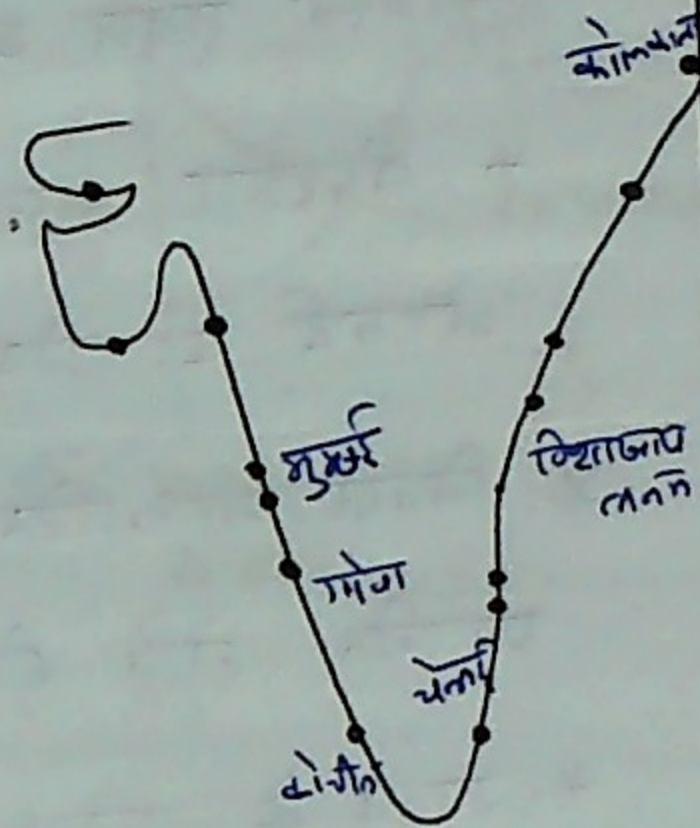 कोलकाता
मुम्बई
विशाखाप
तनम
गोवा
चेन्नई
कोचीन